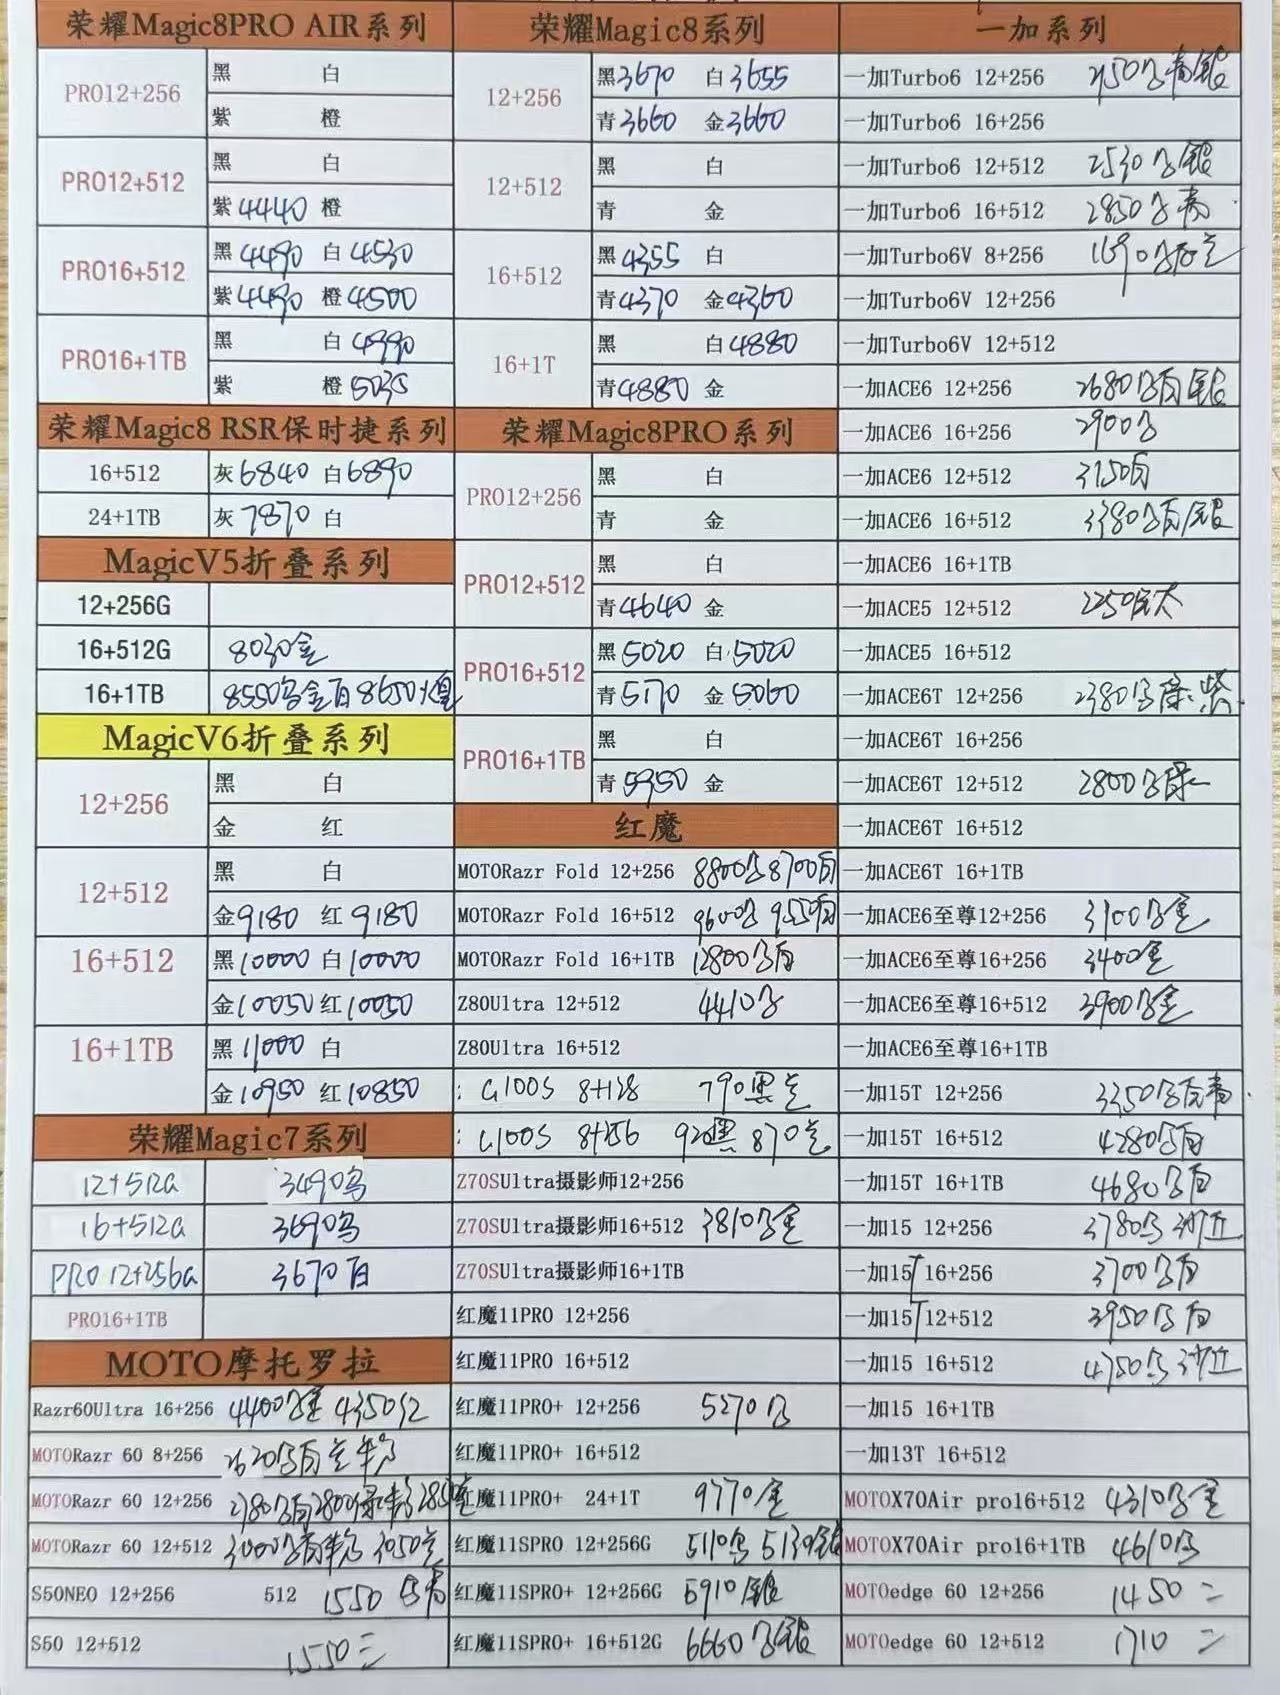 荣耀Magic8PRO AIR系列
PRO12+256
黑 白
紫 橙
PRO12+512
黑 白
紫4440 橙
PRO16+512
黑4490 白4530
紫4490 橙4500
PRO16+1TB
黑 白4990
紫 橙5035
荣耀Magic8 RSR保时捷系列
16+512 灰6840 白6890
24+1TB 灰7870 白
MagicV5折叠系列
12+256G
16+512G 8030金
16+1TB 8550乌金白8650火凰
MagicV6折叠系列
12+256
黑 白
金 红
12+512
黑 白
金9180 红9180
16+512
黑10000 白10000
金10050 红10050
16+1TB
黑11000 白
金10950 红10850
荣耀Magic7系列
12+512G 3490乌
16+512G 3690乌
PRO12+256G 3670白
PRO16+1TB
MOTO摩托罗拉
Razr60Ultra 16+256 4400乌金 4350红
MOTORazr 60 8+256 2620乌白兰
MOTORazr 60 12+256
MOTORazr 60 12+512
S50NEO 12+256 512 1550
S50 12+512 1550三
荣耀Magic8系列
12+256
黑3670 白3655
青3660 金3660
12+512
黑 白
青 金
16+512
黑4355 白
青4370 金4360
16+1T
黑 白4880
青4880 金
荣耀Magic8PRO系列
PRO12+256
黑 白
青 金
PRO12+512
黑 白
青4640 金
PRO16+512
黑5020 白5020
青5170 金5060
PRO16+1TB
黑 白
青5950 金
红魔
MOTORazr Fold 12+256 8800乌8700白
MOTORazr Fold 16+512 9600乌 9550白
MOTORazr Fold 16+1TB 12800乌白
Z80Ultra 12+512 4410乌
Z80Ultra 16+512
: G100S 8+128 790黑兰
: G100S 8+256 920黑 870兰
Z70SUltra摄影师12+256
Z70SUltra摄影师16+512 3810乌金
Z70SUltra摄影师16+1TB
红魔11PRO 12+256
红魔11PRO 16+512
红魔11PRO+ 12+256 5270乌
红魔11PRO+ 16+512
红魔11PRO+ 24+1T 9770金
红魔11SPRO 12+256G 5110乌 5130银
红魔11SPRO+ 12+256G 5910银
红魔11SPRO+ 16+512G 6660乌银
一加系列
一加Turbo6 12+256 乌青银
一加Turbo6 16+256
一加Turbo6 12+512 2530乌银
一加Turbo6 16+512 2850乌青
一加Turbo6V 8+256 1690乌白兰
一加Turbo6V 12+256
一加Turbo6V 12+512
一加ACE6 12+256 2680乌白银
一加ACE6 16+256 2900乌
一加ACE6 12+512 3150白
一加ACE6 16+512 3380乌白银
一加ACE6 16+1TB
一加ACE5 12+512 2250
一加ACE5 16+512
一加ACE6T 12+256 2380乌绿紫
一加ACE6T 16+256
一加ACE6T 12+512 2800乌绿
一加ACE6T 16+512
一加ACE6T 16+1TB
一加ACE6至尊12+256 3100乌金
一加ACE6至尊16+256 3400金
一加ACE6至尊16+512 3900乌金
一加ACE6至尊16+1TB
一加15T 12+256 3350乌白青
一加15T 16+512 4280乌白
一加15T 16+1TB 4680乌白
一加15 12+256 3780乌 沙丘
一加15T 16+256 3700乌白
一加15T 12+512 3950乌白
一加15 16+512 4750乌 沙丘
一加15 16+1TB
一加13T 16+512
MOTOX70Air pro16+512 4310乌金
MOTOX70Air pro16+1TB 4610乌
MOTOedge 60 12+256 1450 二
MOTOedge 60 12+512 1710 二